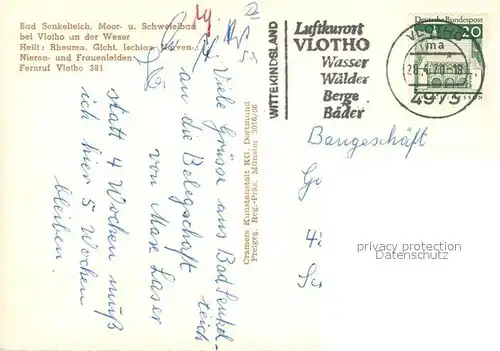 Bad Senkelteich, Moor- u. Schwefelbad
bei Vlotho an der Weser
Heilt: Rheuma, Gicht, Ischias, Nerven-,
Nieren- und Frauenleiden
Fernruf Vlotho 381
Viele Grüsse aus Bad Senkel-
teich
an die Belegschaft
von Max Laser
statt 4 Wochen muß
ich hier 5 Wochen
bleiben.
Cramers Kunstanstalt KG. Dortmund
Preigeg. Reg.-Präs. Münster 3016/66
WITTEKINDSLAND
Luftkurort
VLOTHO
Wasser
Wälder
Berge
Bäder
Deutsche Bundespost
20
VLOTHO
ma
28.4.70-18
4973
Baugeschäft
privacy protection
VOLLMER